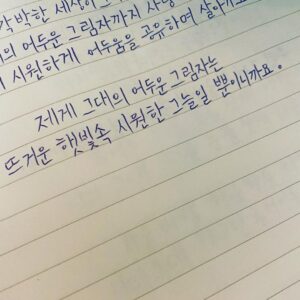 각박한 세상이
의 어두운 그림자까지 사랑
시원하게 어두움을 공유하며 살아가
제게 그대의 어두운 그림자는
뜨거운 햇빛속 시원한 그늘일 뿐이니까요.